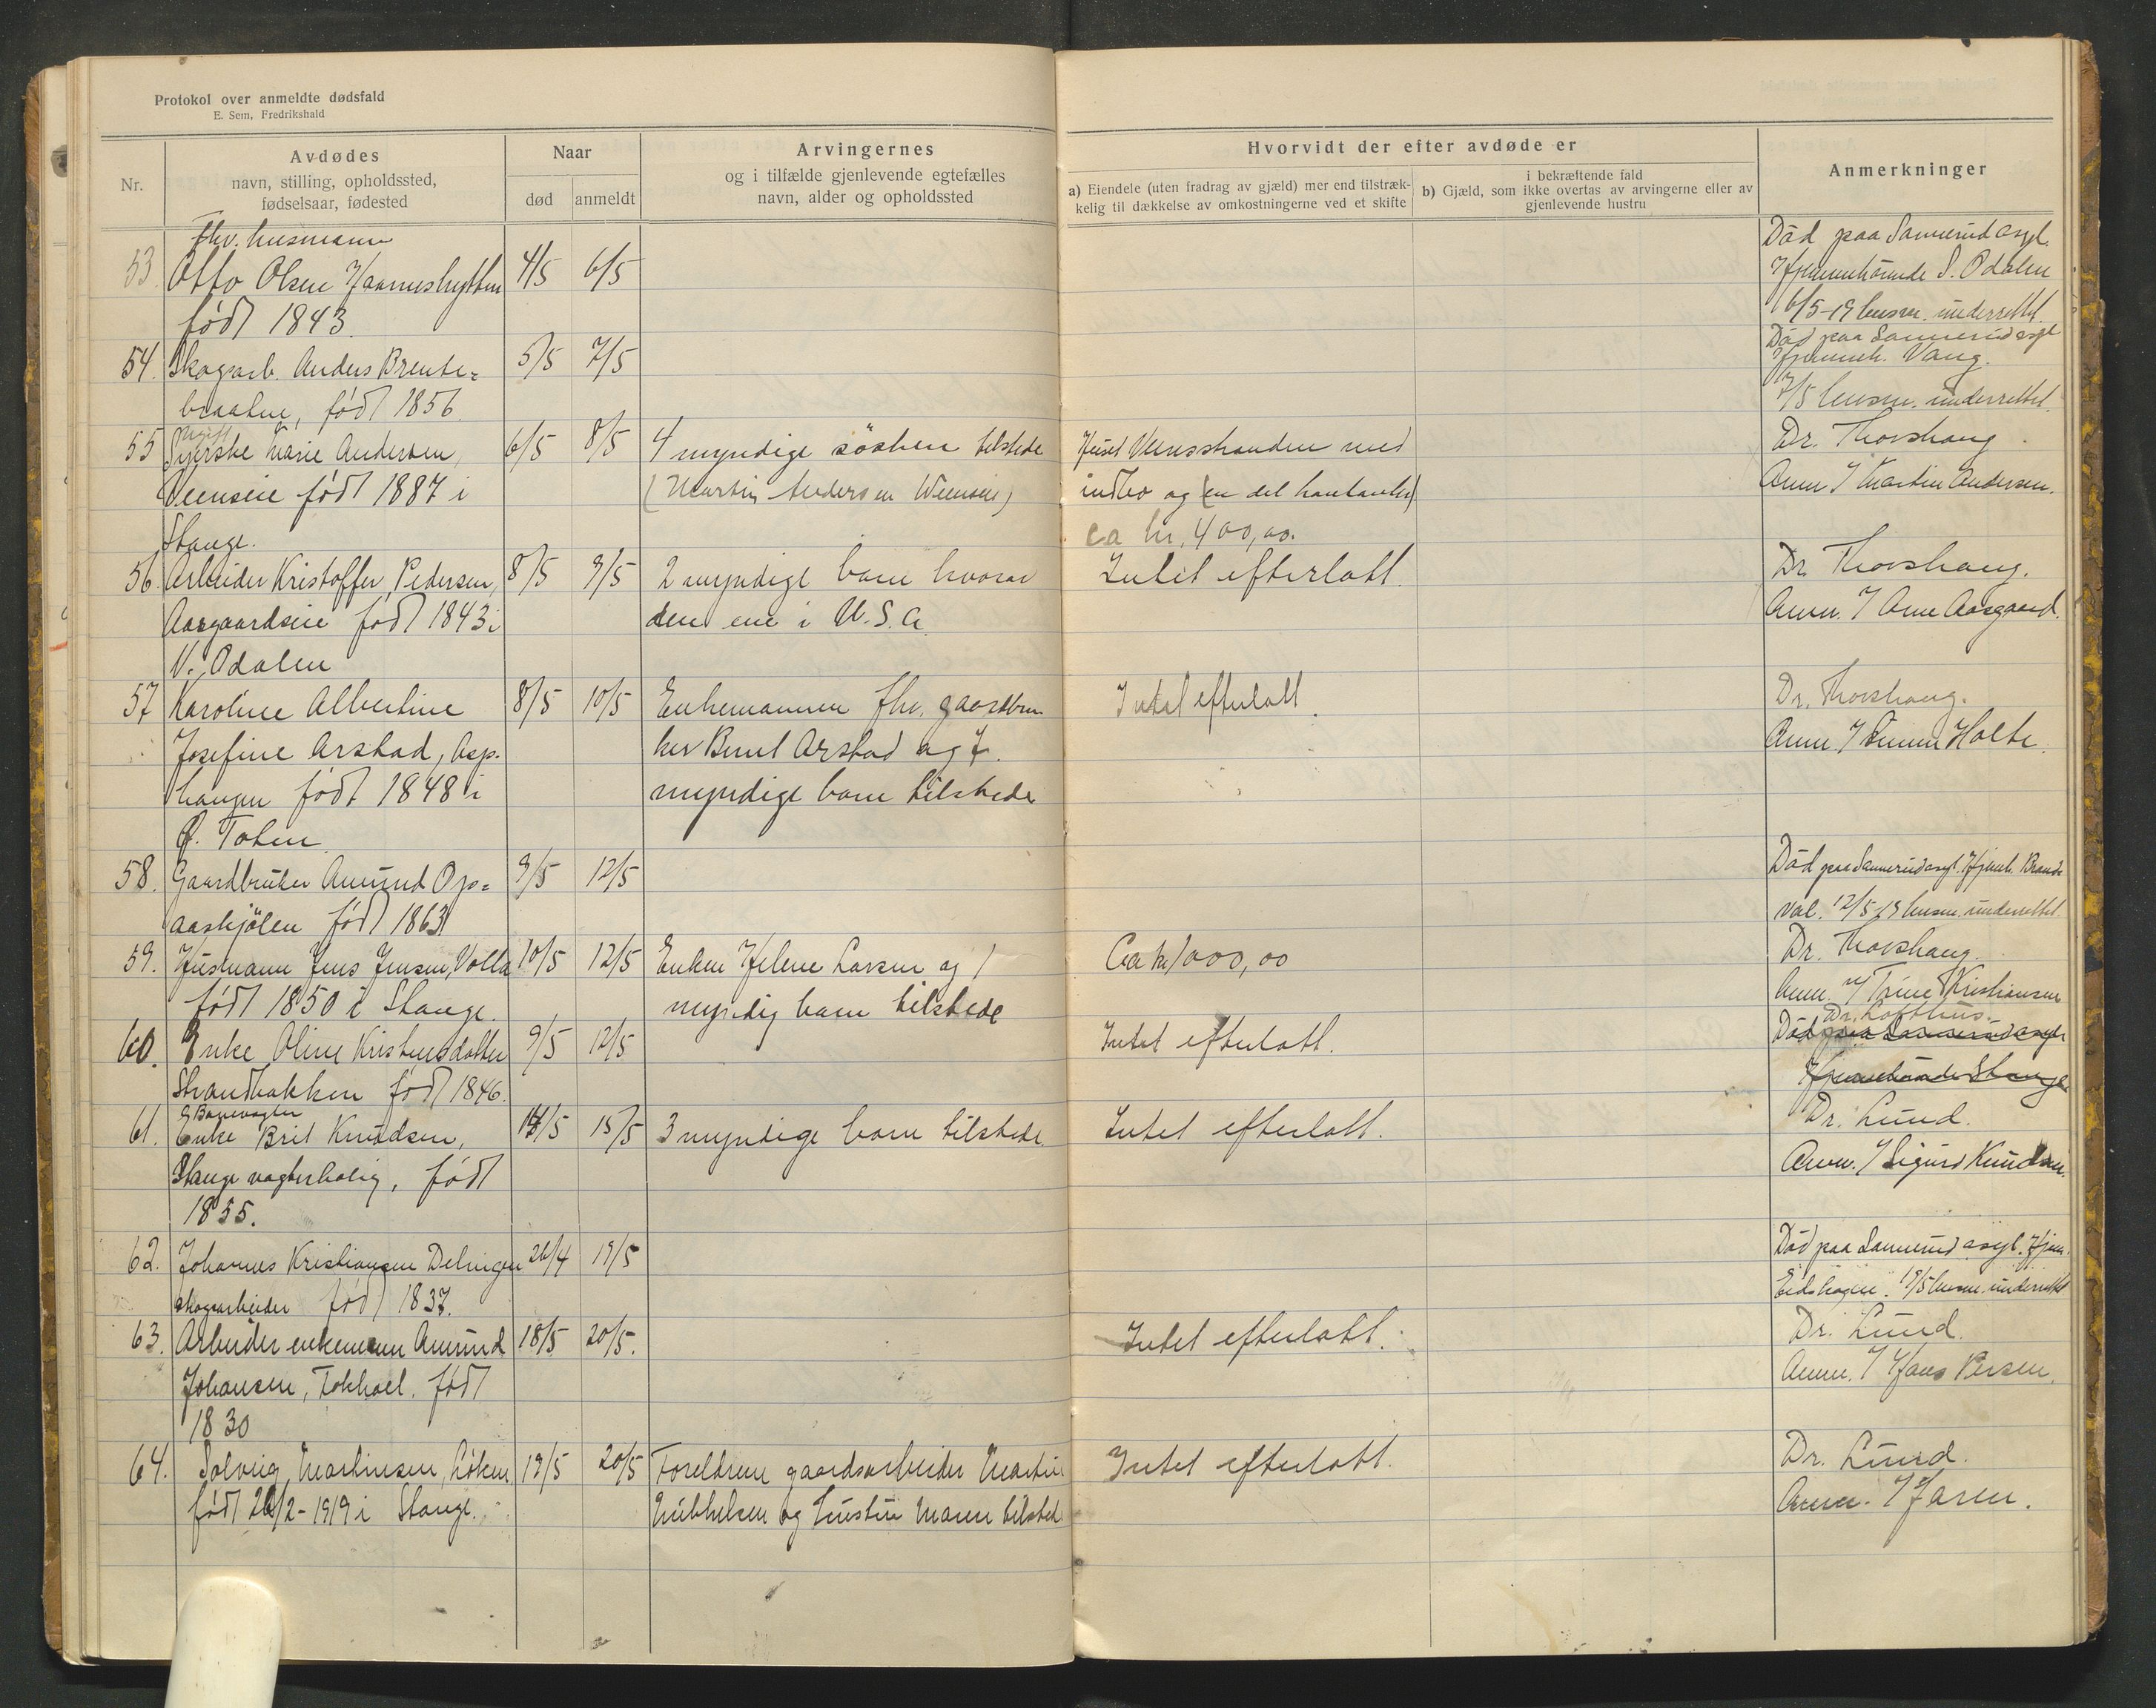 Protokol over anmeldte dødsfald
E. Sem, Fredrikshald
Nr.
Avdødes
navn, stilling, opholdssted,
fødselsaar, fødested
Naar
død
anmeldt
Arvingernes
og i tilfælde gjenlevende egtefælles
navn, alder og opholdssted
Hvorvidt der efter avdøde er
a) Eiendele (uten fradrag av gjæld) mer end tilstræk-
kelig til dækkelse av omkostningerne ved et skifte
i bekræftende fald
b) Gjæld, som ikke overtas av arvingerne eller av
gjenlevende hustru
Anmerkninger
fhv. husmann
53. Otto Olsen 4/5 6/5
født 1843.
Død paa Sannerud asyl.
Hjemmehörende S. Odalen
6/5-19 lensm. underrettet.
54. Skogarb. Anders Brente= 5/5 7/5
braaten, født 1856.
Død paa Sannerud asyl
Hjemmeh. Vang.
7/5 lensm. underrettet.
55 Marie Andersen, 6/5 8/5 4 myndige søsken tilstede
født 1887 i (Martin Andersen
Stange.
Huset med
indbo og (en del
ca kr. 400,00.
Dr. Thorshaug
Anm. / Martin Andersen.
56. Arbeider Kristoffer Pedersen, 8/5 9/5 2 myndige barn hvorav
Aasgaardseie født 1843 i den ene i U.S.A.
V. Odalen
Intet efterlatt.
Dr. Thorshaug.
Anm. / Arne Aasgaard.
57 Karoline Albertine 8/5 10/5 Enkemannen fhv. gaardbru
Josefine Arstad, Asp- ker Bernt Arstad og 7
haugen født 1848 i myndige barn tilstede
Ø. Toten
Intet efterlatt.
Dr. Thorshaug.
Anm. / Holte.
58. Gaardbruker Amund Op= 9/5 12/5
aaskjølen født 1863
Død paa Sannerud asyl. Hjemh. Brand
val. 12/5-19 lensm. underrettet.
59. Husmann Jens Jensen, Volla 10/5 12/5 Enken Helene Larsen og 1
født 1850 i Stange. myndig barn tilstede
Ca kr 1000,00
Dr. Thorshaug.
Anm. / Trine Kristiansen
60. Enke Oline Kristensdatter 9/5 12/5
Strandbakken født 1846.
Intet efterlatt.
Dr. Lofthus.
Død paa Sannerud asyl
Hjemmehörende Stange
Banevogter
61. Enke Brit Knudsen, 14/5 15/5 3 myndige barn tilstede.
Stange vogterbolig, født
1855.
Intet efterlatt.
Dr. Lund.
Anm. / Sigurd Knudsen.
62. Johannes Kristiansen 26/4 19/5
skogsarbeider født 1837.
Død paa Sannerud asyl. Hjem.
Eidskogen. 19/5 lensm. underrettet
63. Arbeider enkemann Amund 18/5 20/5.
Johansen, født
1830
Intet efterlatt.
Dr. Lund.
Anm. / Hans Persen.
64. Solveig Martinsen, Løken, 19/5 20/5 Foreldrene gaardsarbeider Martin
født 26/2-1919 i Stange. Mikkelsen og hustru Maren tilsted
Intet efterlatt.
Dr. Lund.
Anm. / Faren.